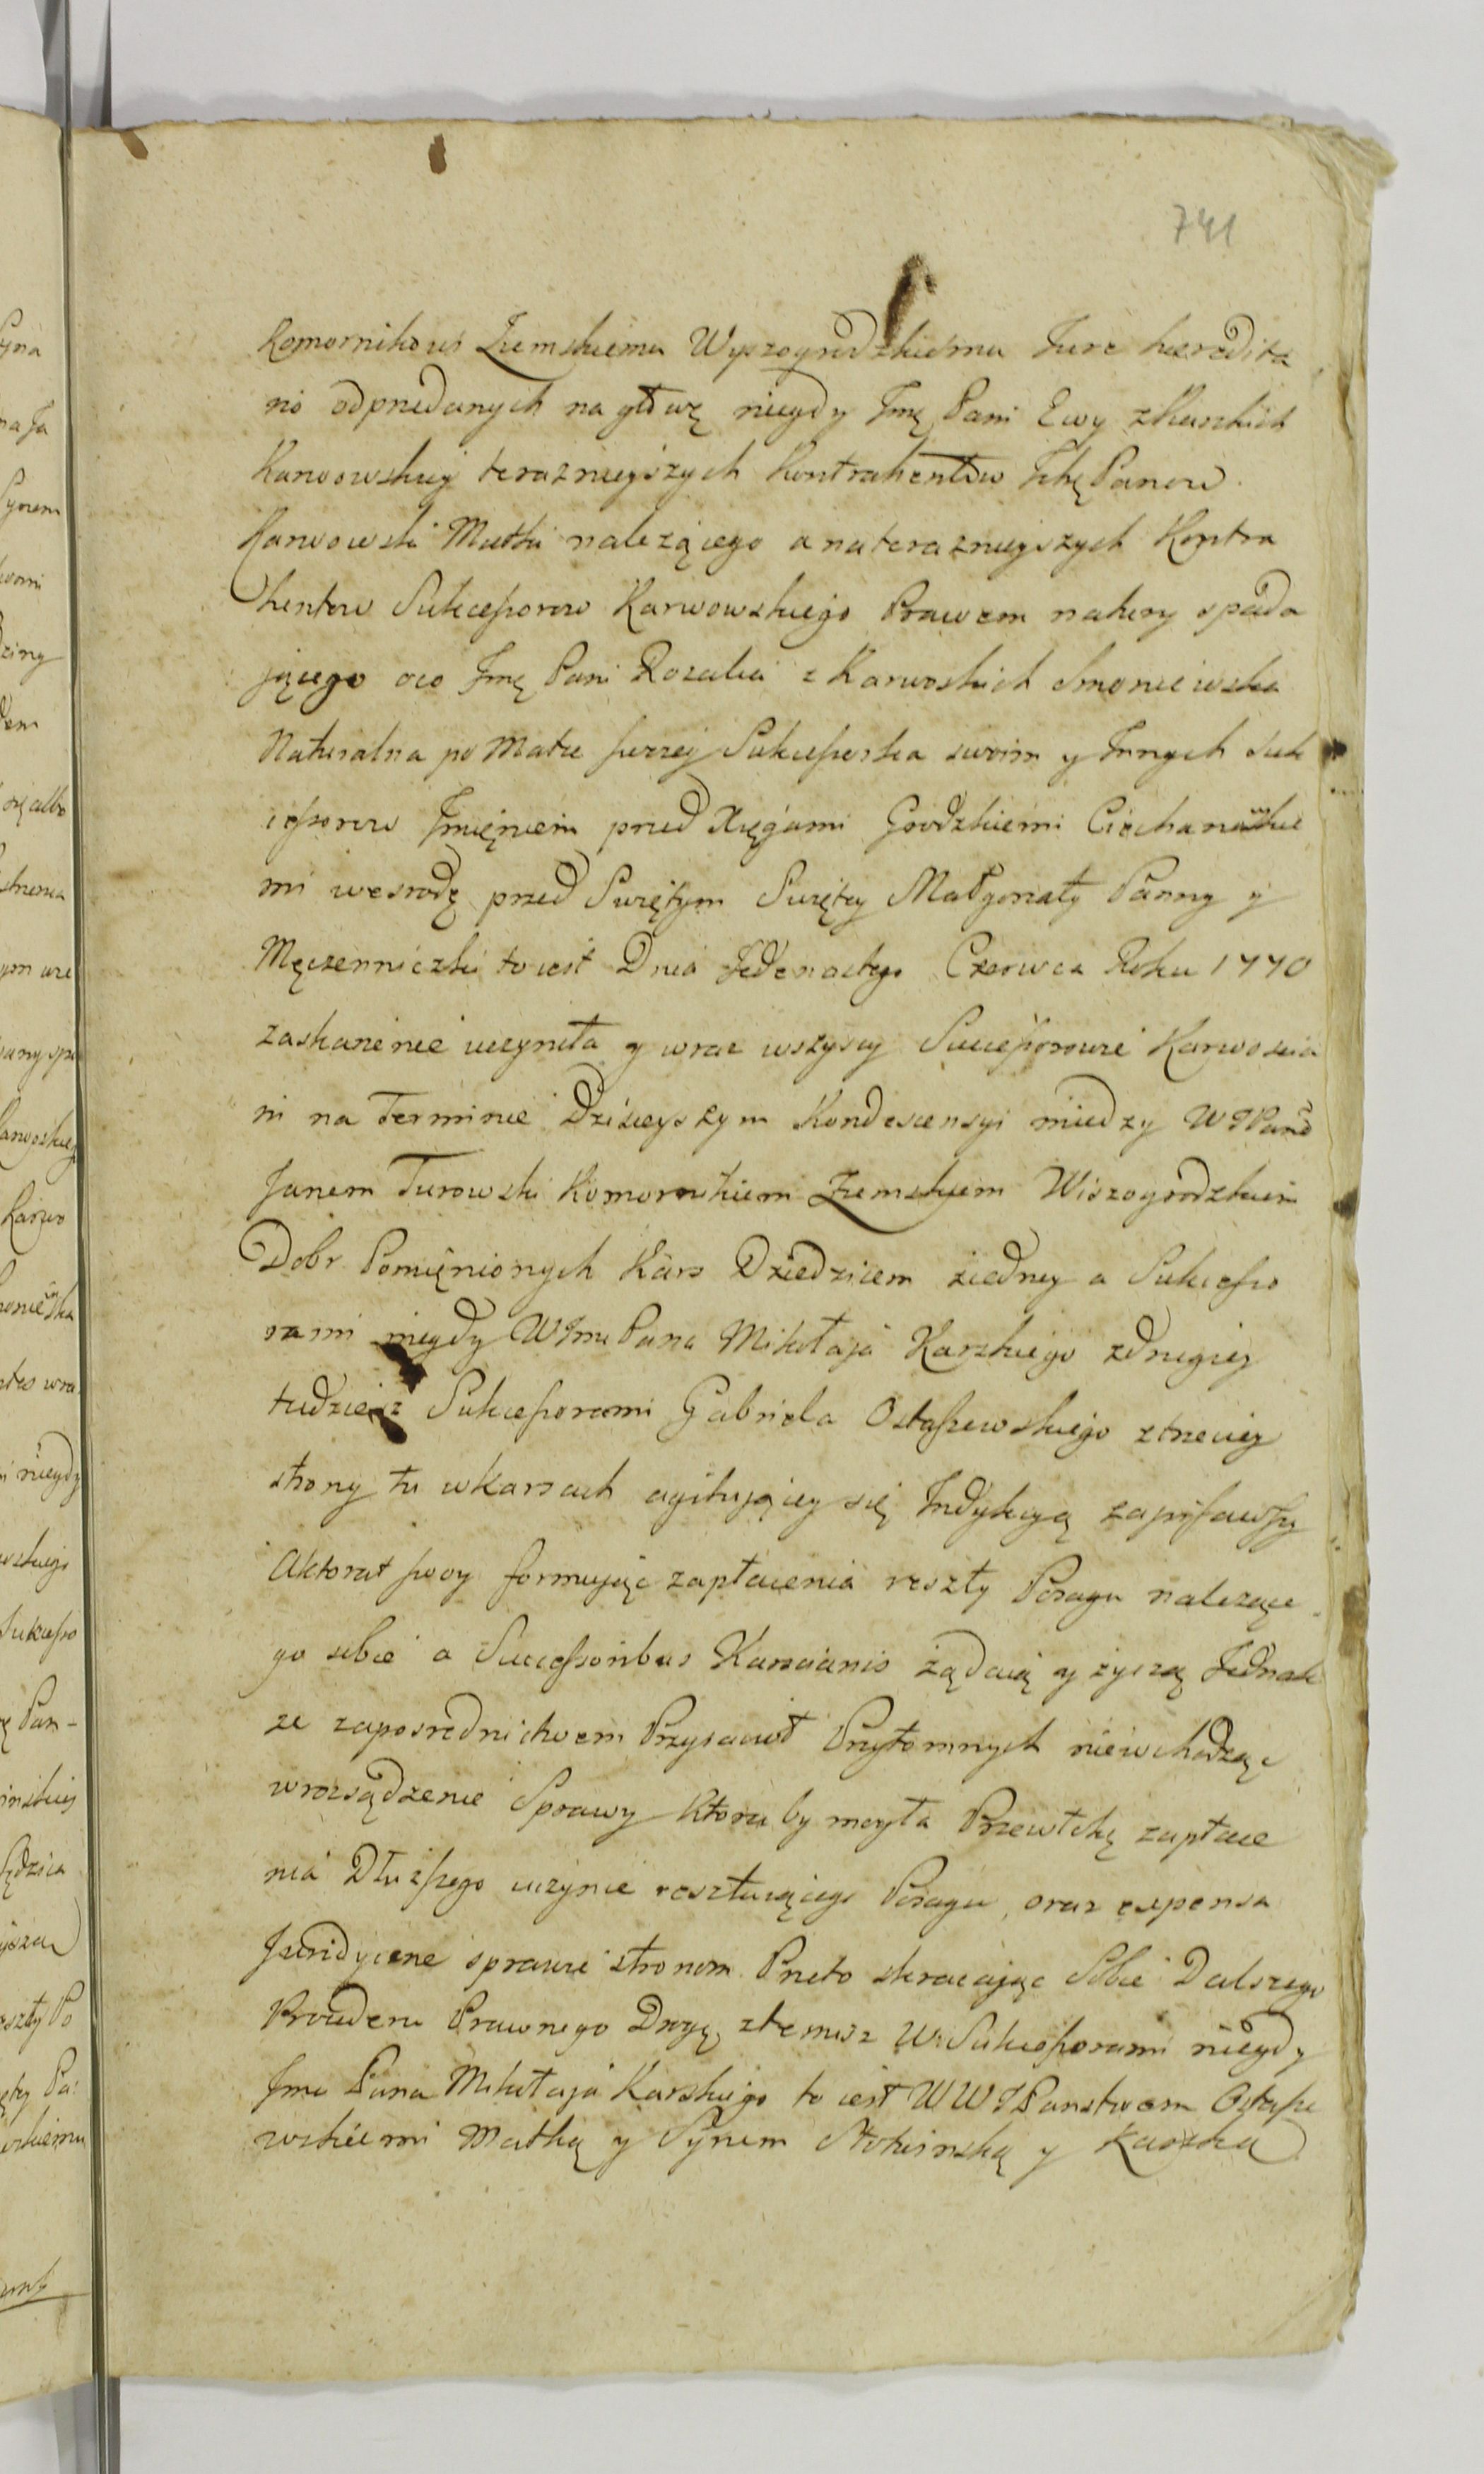 741
Komornikowi Ziemskiemu Wyszogrodzkiemu Jure haeredita
rio odprzedanych na głowę niegdy Jmę Pani Ewy z Karskich
Karwowskiey terazniejszych Kontrahentów Ichę Panow
Karwowski Matki należącego a naterazniejszych Kontra
hentow Sukcessorow Karwowskiego Prawem natury spada
jącego oco Jmę Pani Rozalia z Karwoskich Smoniewska
Naturalna po Matce swzey Sukcessorka swoim y Innych suk
cessorow Imięniem przed Xięgami Grodzkiemi Ciechanowskie
mi wesrodę przed Swiętym Swiętey Małgorzaty Panny y
Męczenniczki to iest Dnia Jedenastego Czerwca Roku 1770
zaskarżenie uczyniła y wraz wszyscy Succesorowie Karwoscia
ni na Terminie Dzisieyszym Kondescensyi miedzy WJPane
Janem Turowski Komornikiem Ziemskiem Wiszogrodzkim
Dobr Pomięnionych Kars Dziedzicem ziedney a Sukcesso
rami niegdy WJmc Pana Mikołaja Karskiego zdrugiey
tudziesz Sukcessorami Gabriela Ostaszewskiego ztrzeciey
strony tu wKarsach agitującey się Indykcyą zapisawszy
Aktorat swoy formując zapłacenia reszty Posagu należące
go sobie a Successoribus Karscianis żądaią y życzą Jednak
ze zaposrednictwem Przyiacioł Przytomnych niewchodząc
wrozsądzenie Sprawy ktoraby mogła Przewłokę zapłace
nia Dłuższego uczynic resztuiącego Posagu, oraz expensa
Juridyczne sprawić stronom Przeto skracając Sobie Dalszego
Prawnego Drogę ztemisz W: Sukcessorami niegdy
Jmc Pana Mikołaja Karskiego to iest WWJPanstwem Ostasze
wskiemi Matką y Synem Stokinską y Karską